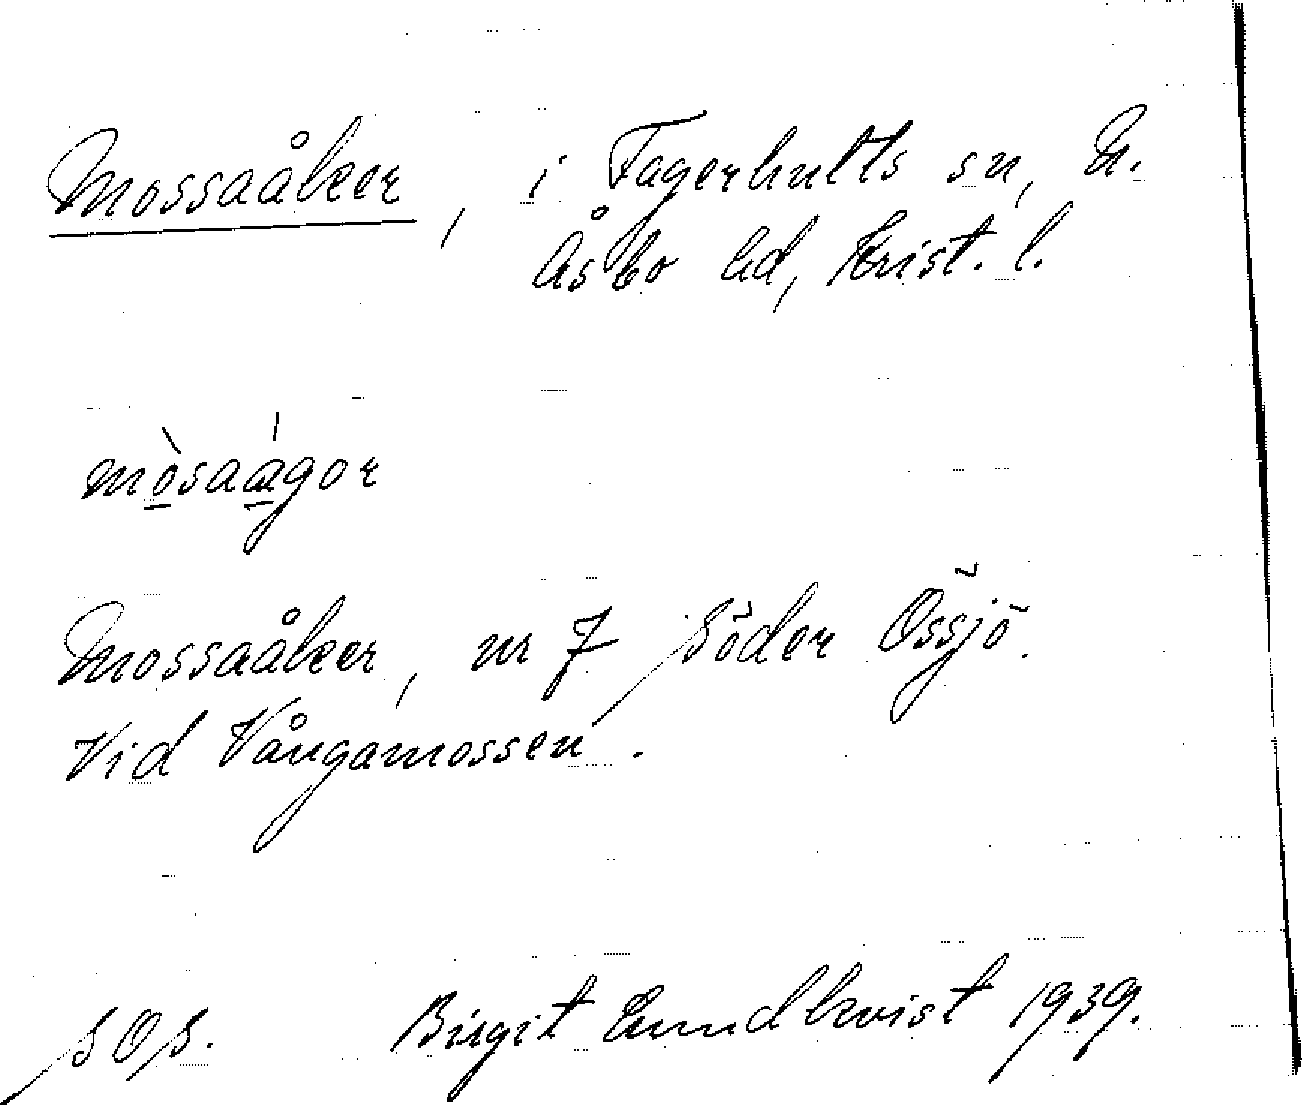 Mossaåker, i Fagerhults sn, N.
Åsbo hd, Krist. l.
mòsaágor
Mossaåker, nr 7 Söder Össjö.
Vid Vångamossen.
SOS. Birgit Lundkvist 1939.